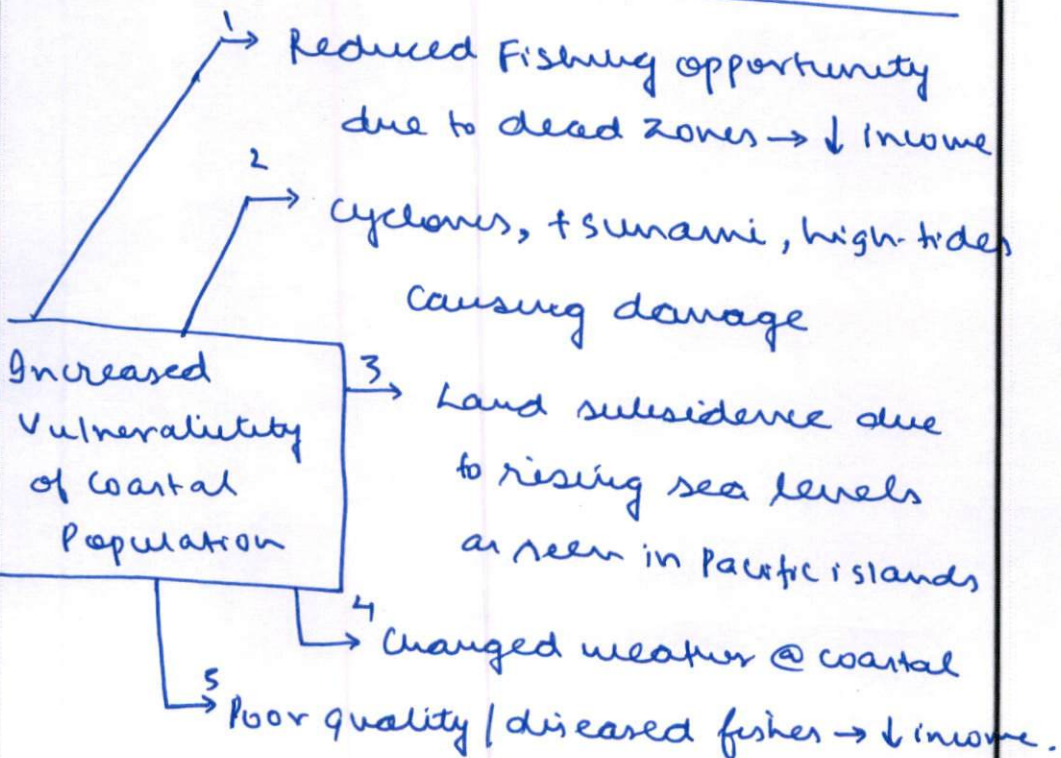 1
Reduced Fishing opportunity
due to dead zones → ↓ income
2
cyclones, tsunami, high-tides
causing damage
Increased
Vulneraliutity
of coastal
Population
3
Land subsidence due
to rising sea levels
as seen in Pacific islands
4
Changed weather @ coastal
5
Poor quality / diseased fishes → ↓ income.